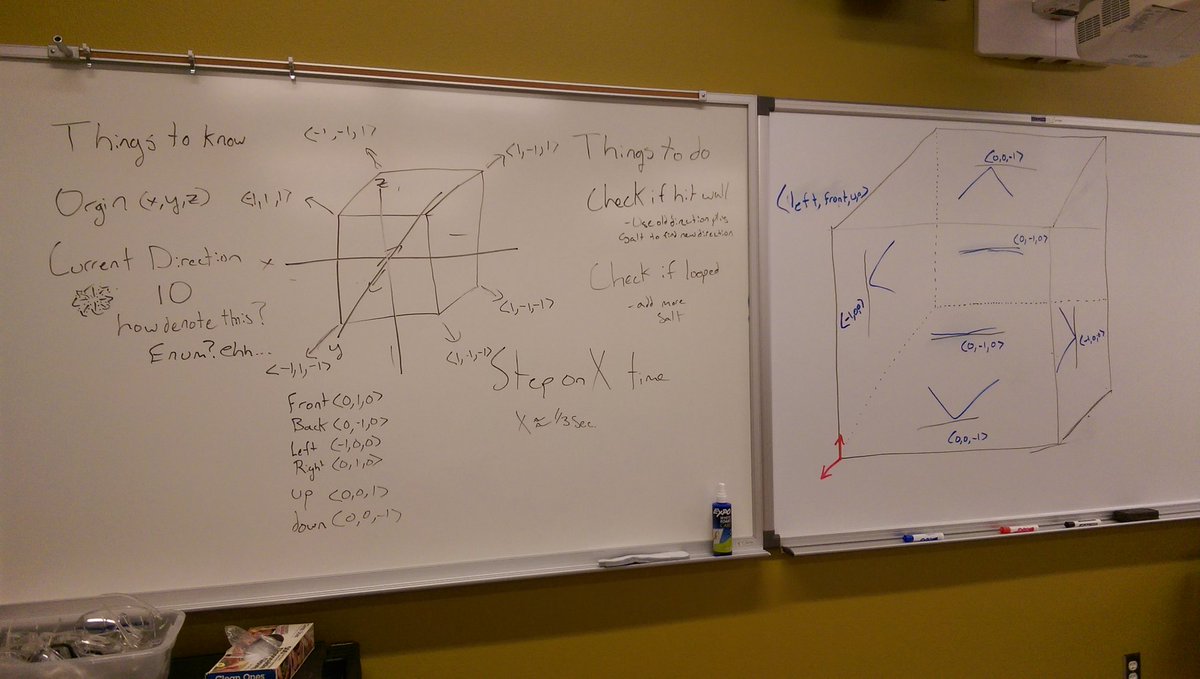 Things to know
Orgin (x,y,z)
Current Direction
10
how denote this?
Enum? ehh...
<-1,-1,1>
<1,-1,1>
<-1,1,1>
z
x
y
<-1,1,-1>
<1,1,-1>
<1,-1,-1>
Front <0,1,0>
Back <0,-1,0>
Left <-1,0,0>
Right <0,1,0>
up <0,0,1>
down <0,0,-1>
Things to do
Check if hit wall
-Use old direction plus
Salt to find new direction
Check if looped
-add more
Salt
Step on X time
X ≈ 1/3 Sec.
<left, front, up>
<0,0,-1>
<0,-1,0>
<-1,0,0>
<-1,0,0>
<0,-1,0>
<0,0,-1>
EXPO
Clean Ones